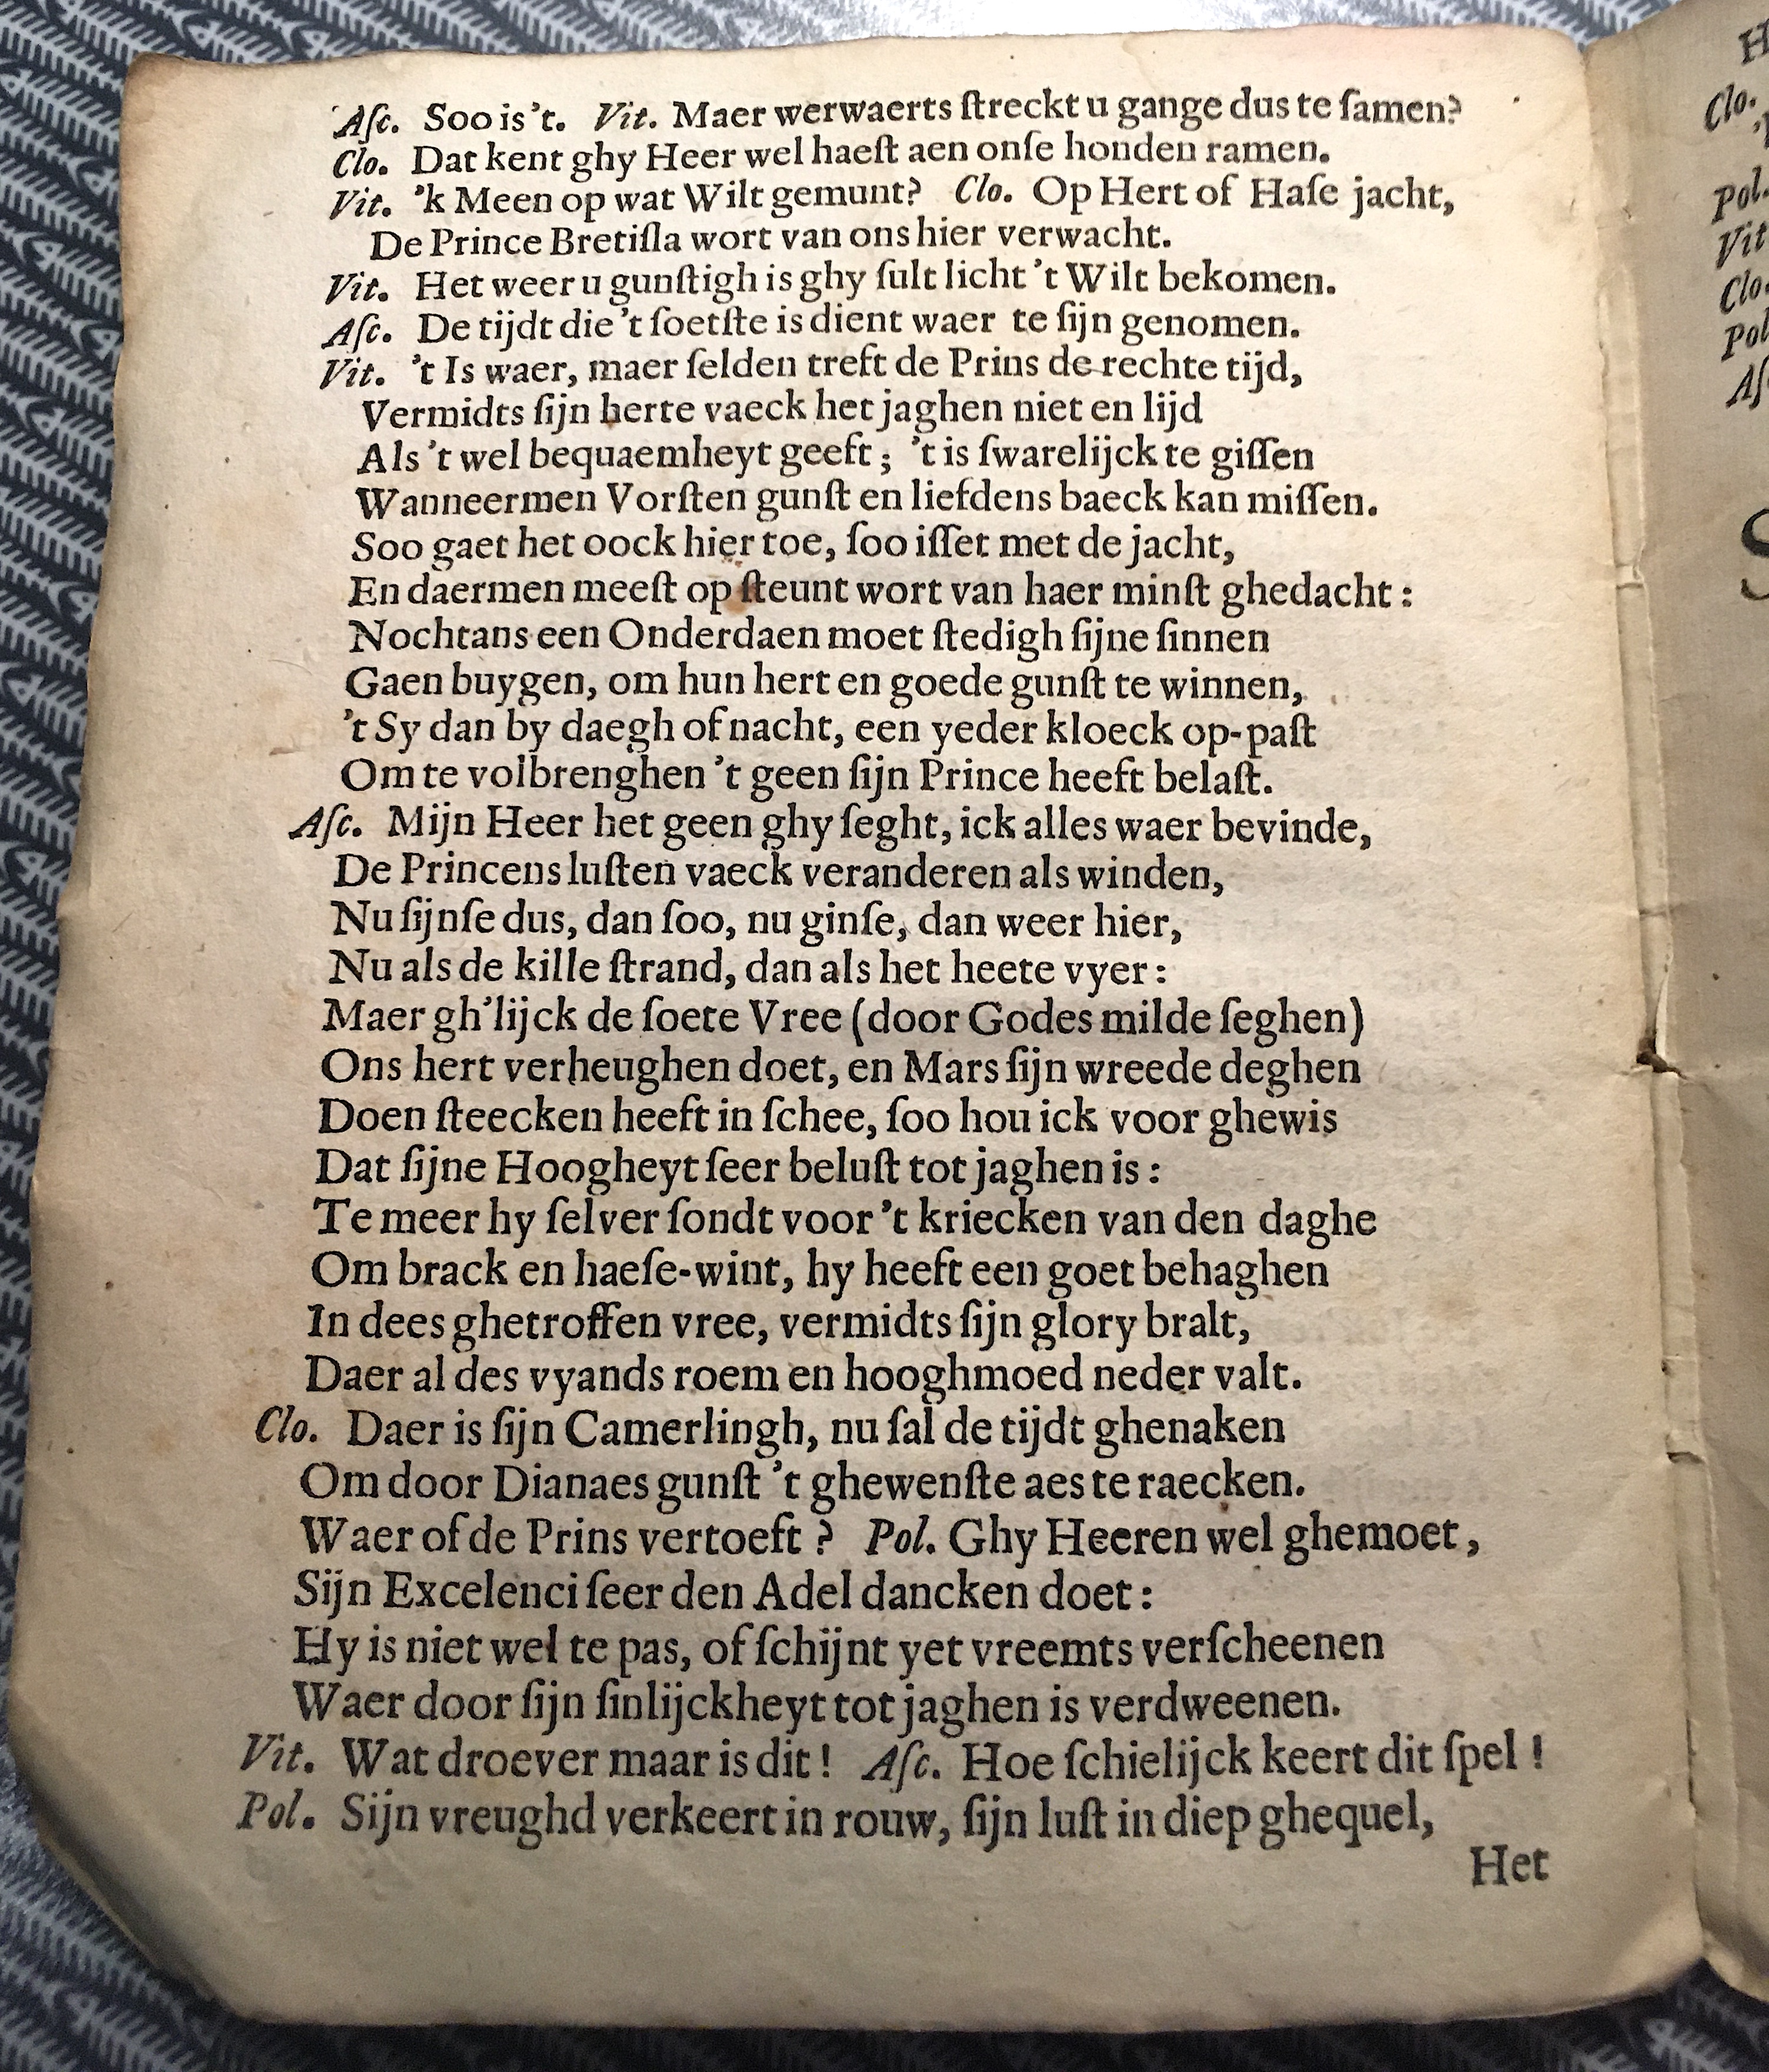 Aſc. Soo is 't. Vit. Maer werwaerts ſtreckt u gange dus te ſamen?
Clo. Dat kent ghy Heer wel haeſt aen onſe honden ramen.
Vit. 'k Meen op wat Wilt gemunt? Clo. Op Hert of Haſe jacht,
De Prince Bretiſla wort van ons hier verwacht.
Vit. Het weer u gunſtigh is ghy ſult licht 't Wilt bekomen.
Aſc. De tijdt die 't ſoetſte is dient waer te ſijn genomen.
Vit. 't Is waer, maer ſelden treft de Prins de rechte tijd,
Vermidts ſijn herte vaeck het jaghen niet en lijd
Als 't wel bequaemheyt geeft; 't is ſwarelijck te giſſen
Wanneermen Vorſten gunſt en liefdens baeck kan miſſen.
Soo gaet het oock hier toe, ſoo iſſet met de jacht,
En daermen meeſt op ſteunt wort van haer minſt ghedacht:
Nochtans een Onderdaen moet ſtedigh ſijne ſinnen
Gaen buygen, om hun hert en goede gunſt te winnen,
't Sy dan by daegh of nacht, een yeder kloeck op-paſt
Om te volbrenghen 't geen ſijn Prince heeft belaſt.
Aſc. Mijn Heer het geen ghy ſeght, ick alles waer bevinde,
De Princens luſten vaeck veranderen als winden,
Nu ſijnſe dus, dan ſoo, nu ginſe, dan weer hier,
Nu als de kille ſtrand, dan als het heete vyer:
Maer gh'lijck de ſoete Vree (door Godes milde ſeghen)
Ons hert verheughen doet, en Mars ſijn wreede deghen
Doen ſteecken heeft in ſchee, ſoo hou ick voor ghewis
Dat ſijne Hoogheyt ſeer beluſt tot jaghen is:
Te meer hy ſelver ſondt voor 't kriecken van den daghe
Om brack en haeſe-wint, hy heeft een goet behaghen
In dees ghetroffen vree, vermidts ſijn glory bralt,
Daer al des vyands roem en hooghmoed neder valt.
Clo. Daer is ſijn Camerlingh, nu ſal de tijdt ghenaken
Om door Dianaes gunſt 't ghewenſte aes te raecken.
Waer of de Prins vertoeft? Pol. Ghy Heeren wel ghemoet,
Sijn Excelenci ſeer den Adel dancken doet:
Hy is niet wel te pas, of ſchijnt yet vreemts verſcheenen
Waer door ſijn ſinlijckheyt tot jaghen is verdweenen.
Vit. Wat droever maar is dit! Aſc. Hoe ſchielijck keert dit ſpel!
Pol. Sijn vreughd verkeert in rouw, ſijn luſt in diep ghequel,
Het
Clo.
Pol.
Vit
Clo.
Pol